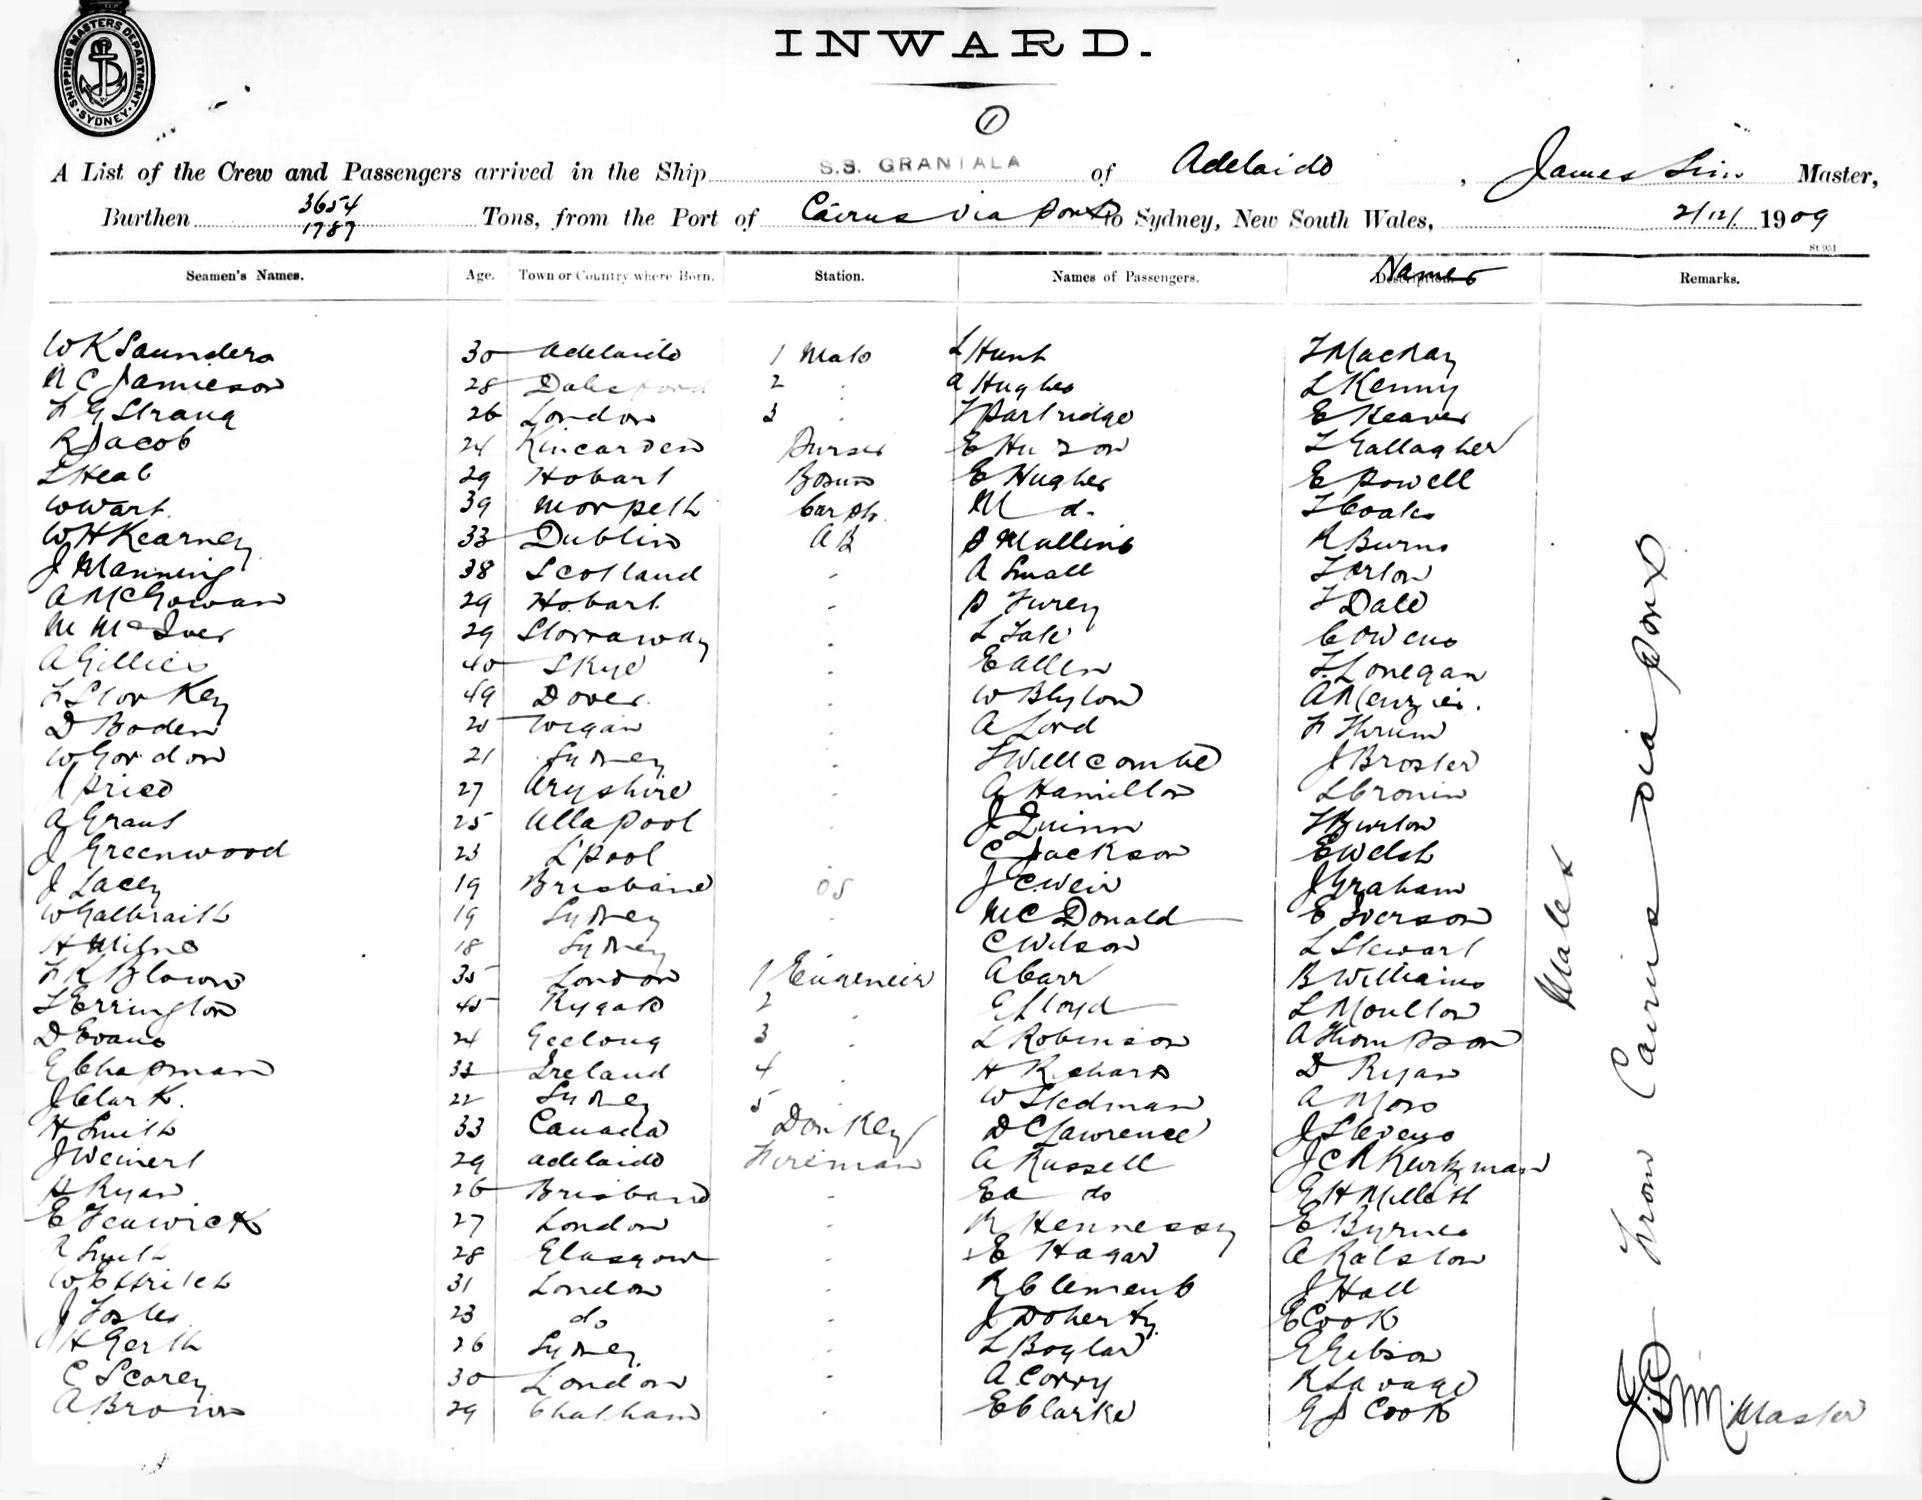 SHIPPING MASTERS DEPARTMENT SYDNEY
INWARD.
1
A List of the Crew and Passengers arrived in the Ship S.S. GRANTALA of Adelaide, James Sim Master,
Burthen 3654 1787 Tons, from the Port of Cairns via ports to Sydney, New South Wales, 2/12/ 1909
St 951
Seamen's Names. Age. Town or Country where Born. Station. Names of Passengers. Names Description. Remarks.
W K Saunders 30 Adelaide 1 Mate L Hunt F MacKay
N C Jamieson 28 2 " A Hughes L Kenny
F G Strang 26 London 3 " F Partridge E Keaver
R Jacob 24 Kincarden Purser E Huzon F Gallagher
L Heab 29 Hobart Bosun E Hughes E Powell
W Wart 39 Morpeth Carptr M do F Coates
W H Kearney 33 Dublin A B P Mullins R Burns
J Manning 38 Scotland " A Small F Orton
A McGowan 29 Hobart " P Furey F Dale
M McIver 29 Stornaway " L Tate C Owens
A Gillies 40 Skye " E Allen F Lonegan
F Storkey 49 Dover " W Blyton A Menzies.
D Boden 20 Wigan " A Lord F Thrum
W Gordon 21 Sydney " F Wellcombe J Broster
J Price 27 Aryshire " A Hamilton L Cronin
A Grant 25 Ullapool " J Quinn F Burton
J Greenwood 23 L'pool " C Jackson E Welsh
J Lacey 19 Brisbane O S J C Weir J Graham
W Galbraith 19 Sydney " McDonald E Iverson
H Milne 18 Sydney C Wilson L Stewart
F K Blown 35 London 1 Engineer A Carr B Williams
T Errington 45 2 " E Lloyd L Moulton
D Evans 24 Geelong 3 " L Robinson A Thompson
E Chapman 33 Ireland 4 " H Richards D Ryan
J Clark. 22 Sydney 5 " W Stedman A Moss
H Smith 33 Canada Donkey D C Lawrence J Stevens
J Weinert 29 Adelaide Fireman A Russell J C R Kurkman
H Ryan 26 Brisbane " E A do E H Milleth
E Fenwick 27 London " M Hennessy E Byrnes
R Smith 28 Glasgow " E Hagar A Ralston
W Ettritch 31 London " R Clements J Hall
J Foster 23 do " J Doherty E Cook
H Gerth 26 Sydney " L Boylan E Gibson
C Scorey 30 London " A Corry R Savage
A Brown 29 Chatham " E Clarke G J Cook
Males
From Cairns via ports
J Sim Master